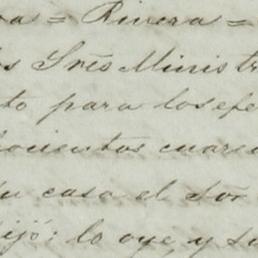 = Rivera =
Sres Minis
to para los efe
cientos cuare
su casa el Sor
dijo: lo oye, y